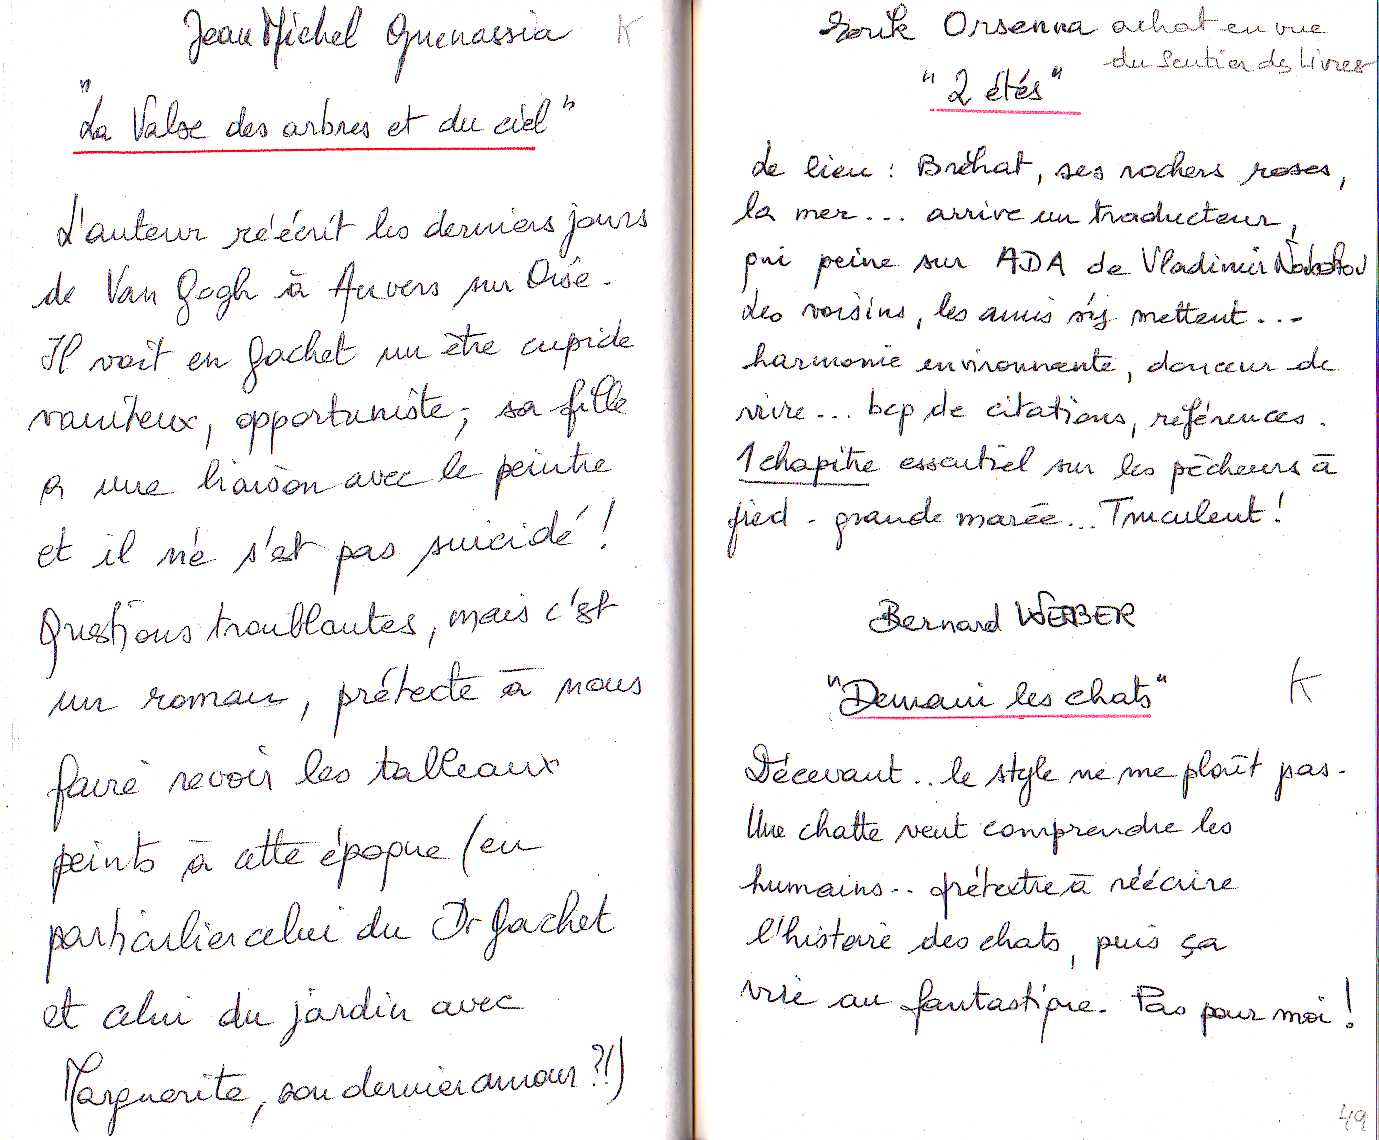 Jean Michel Guenassia K
"La Valse des arbres et du ciel"
L'auteur réécrit les derniers jours
de Van Gogh à Auvers sur Oise.
Il voit en Gachet un être cupide
vaniteux, opportuniste ; sa fille
a une liaison avec le peintre
et il ne s'est pas suicidé !
Questions troublantes, mais c'est
un roman, prétexte à nous
faire revoir les tableaux
peints à cette époque (en
particulier celui du Dr Gachet
et celui du jardin avec
Marguerite, son dernier amour ?!)
Erik Orsenna achat en vue
du Sentier des Livres
"2 étés"
Le lieu : Bréhat, ses rochers roses,
la mer... arrive un traducteur,
qui peine sur ADA de Vladimir Nabokov
Les voisins, les amis s'y mettent...
harmonie environnante, douceur de
vivre... bcp de citations, références.
1 chapitre essentiel sur les pêcheurs à
pied - grande marée... Truculent !
Bernard WERBER
"Demain les chats" K
Décevant.. le style ne me plaît pas.
Une chatte veut comprendre les
humains.. prétexte à réécrire
l'histoire des chats, puis ça
vire au fantastique. Pas pour moi !
49